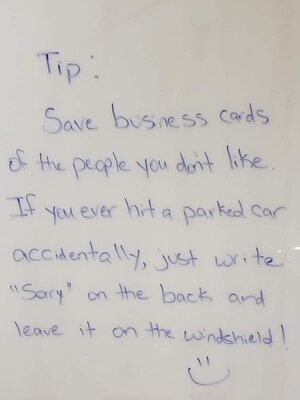 Tip:
Save business cards
of the people you don't like.
If you ever hit a parked car
accidentally, just write
"Sory" on the back and
leave it on the windshield!